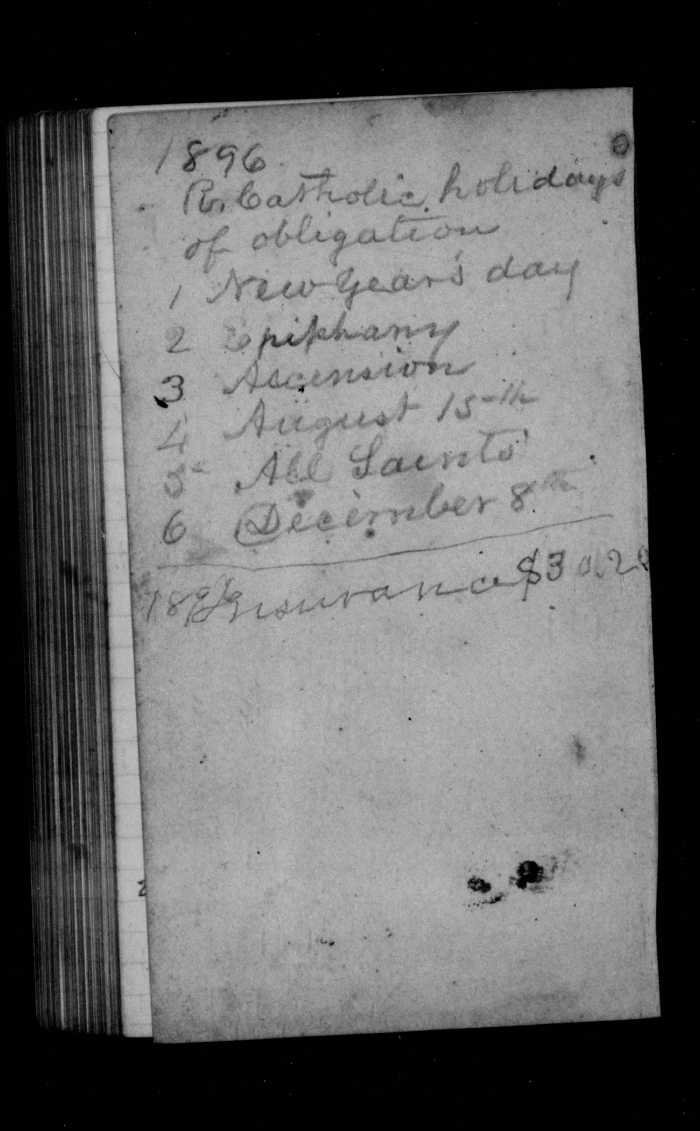 1896
R. Catholic holidays
of obligation
1 New Year's day
2 Epiphany
3 Ascension
4 August 15th
5 All Saints'
6 December 8th
Insurance $3